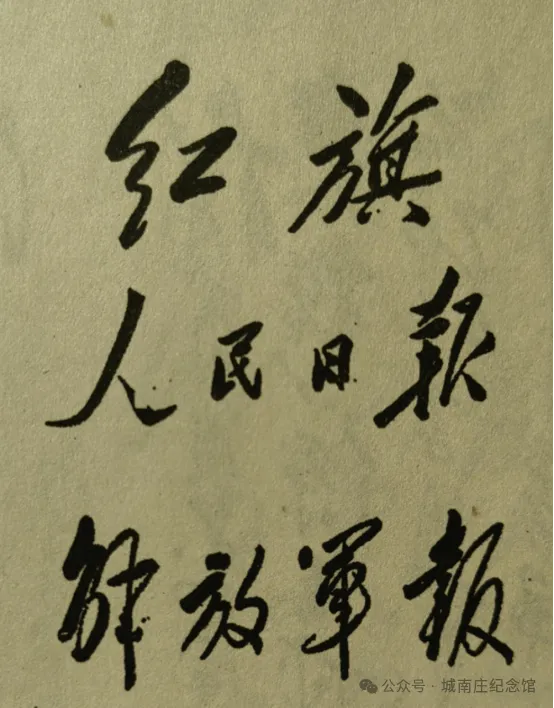 红旗
人民日報
解放軍報
公众号·城南庄纪念馆